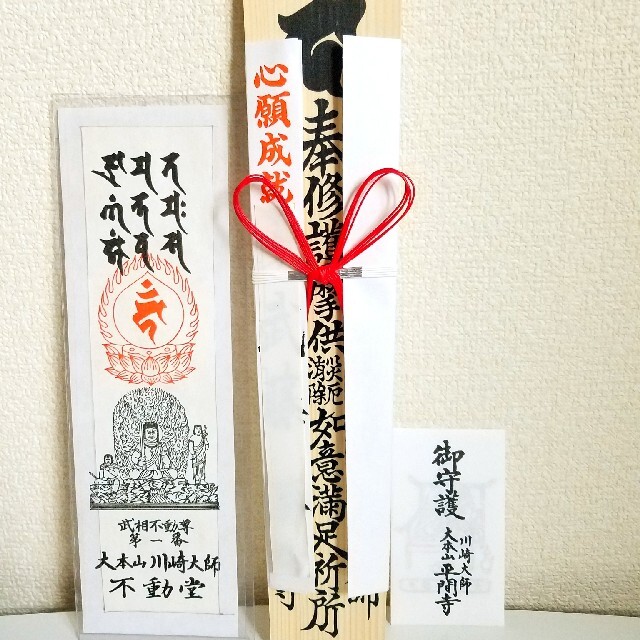 武相不動尊
第一番
大本山川崎大師
不動堂
心願成就
奉修護摩供
災厄
消除
如意満足祈所
師
寺
御守護
川崎大師
大本山平間寺